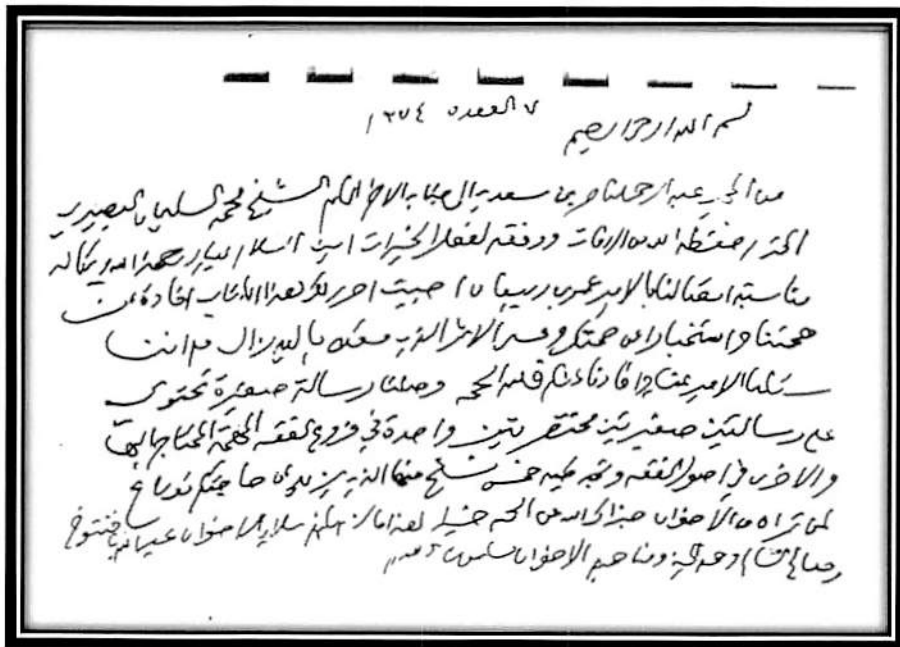 ٧ القعدة ١٣٧٤
بسم الله الرحمن الرحيم
من المحب عبد الرحمن الناصر بن سعدي الى جناب الاخ المكرم الشيخ محمد السليمان البصيري
المحترم حفظه الله من الآفات ووفقه لفعل الخيرات امين السلام عليكم ورحمة الله وبركاته
مناسبة اتصالنا بالامير عمر بن ربيعان احببت احرر لكم هذا الكتاب افادة عن
صحتنا واستخبارا عن صحتكم وسر الاثر الذي
سئلنا الامير عنكم وافادنا عنكم فلله الحمد وصلنا رسالة صغيرة تحتوي
على رسالتين صغيرتين مختصرتين واحدة في فروع الفقه المهمة المحتاج اليها
والاخرى في اصول الفقه وتجد طيه خمس نسخ منها الذي يزيد عن حاجتكم توزع
لمن تراه من الاخوان جزاك الله من الخير خيرا هذا ما لزم سلام الاخوان
ومنا جميع الاخوان يسلمون